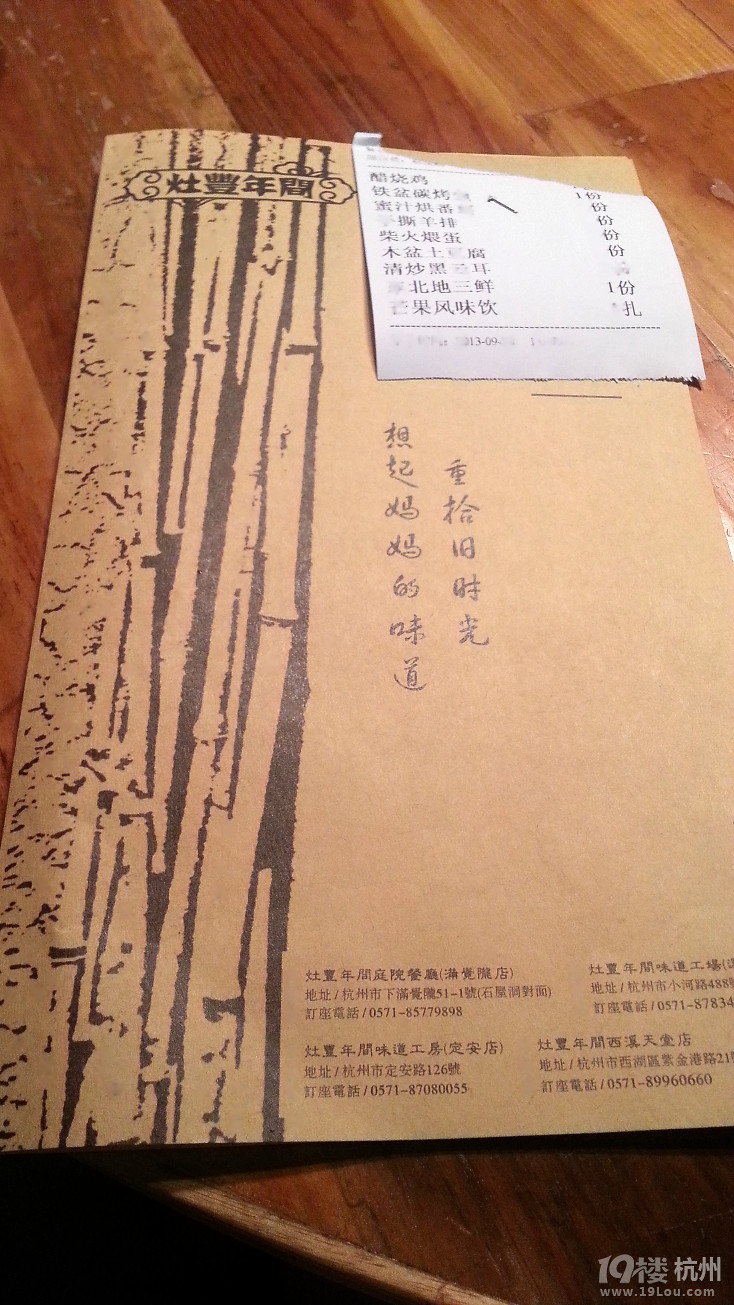 灶豐年間
醋烧鸡
铁盆碳烤 1份
蜜汁烘番 份
撕羊排 份
柴火煨蛋 份
木盆土 腐 份
清炒黑 耳
北地三鲜 1份
芒果风味饮 扎
013-09-
重拾旧时光
想起妈妈的味道
灶豐年間庭院餐廳(滿覺隴店)
地址/杭州市下滿覺隴51-1號(石屋洞對面)
訂座電話/0571-85779898
灶豐年間味道工場(
地址/杭州市小河路488號
訂座電話/0571-87834
灶豐年間味道工房(定安店)
地址/杭州市定安路126號
訂座電話/0571-87080055
灶豐年間西溪天堂店
地址/杭州市西湖區紫金港路21號
訂座電話/0571-89960660
19楼 杭州
www.19Lou.com